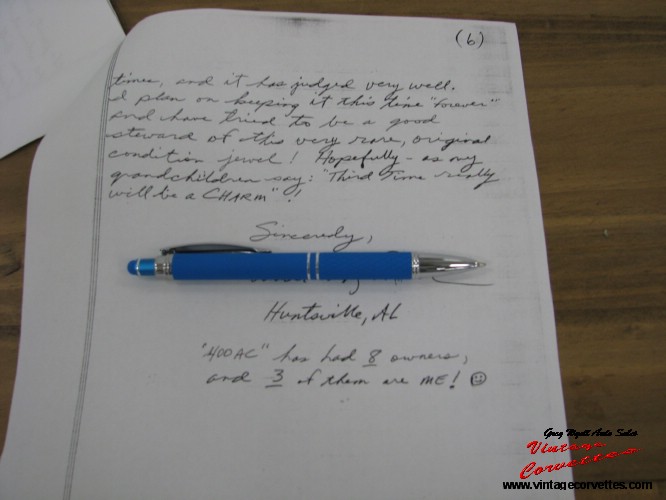 (6)
times, and it has judged very well.
I plan on keeping it this time "forever"
and have tried to be a good
steward of this very rare, original
condition jewel! Hopefully - as my
grandchildren say: "Third Time really
will be a CHARM"!
Sincerely,
Huntsville, AL
"400AC" has had 8 owners,
and 3 of them are ME! ☺
Greg Wyatt Auto Sales
Vintage
Corvettes
www.vintagecorvettes.com